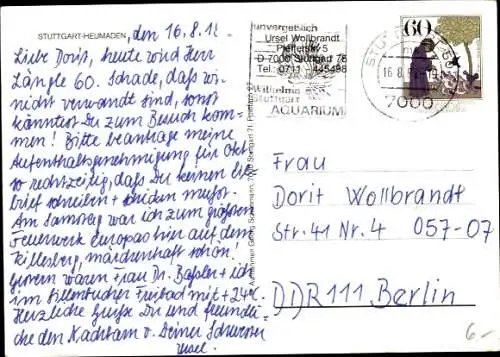 STUTTGART-HEUMADEN, den 16.8.
Liebe Dorit, heute wird Herr
Längle 60. Schade, daß wir
nicht verwandt sind, sonst
könntest Du zum Besuch kom-
men! Bitte beantrage meine
Aufenthaltsgenehmigung für Okt.
so rechtzeitig, daß Du keinen Eil-
brief schreiben + schicken mußt.
Am Samstag war ich zum größten
Feuerwerk Europas hier auf dem
Killesberg, märchenhaft schön!
Gestern waren Frau Dr. + ich
im Freibad mit + 24°C.
Herzliche Grüße Du und freundli-
che den Nachbarn v. Deiner Schwester
Ursel.
unvergeßlich
Ursel Wollbrandt
Pfeilerstr. 5
D-7000 Stuttgart 75
Tel.: 0711 - 445498
Wilhelma
Stuttgart
AQUARIUM
60
16.8.
7000
Frau
Dorit Wollbrandt
Str. 41 Nr. 4 057-07
DDR 111 Berlin
6.-